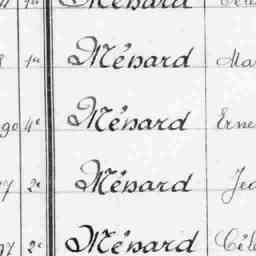 Ménard
1re Ménard Ma
90 4e Ménard Erne
7 2e Ménard Jea
97 2e Ménard Cél